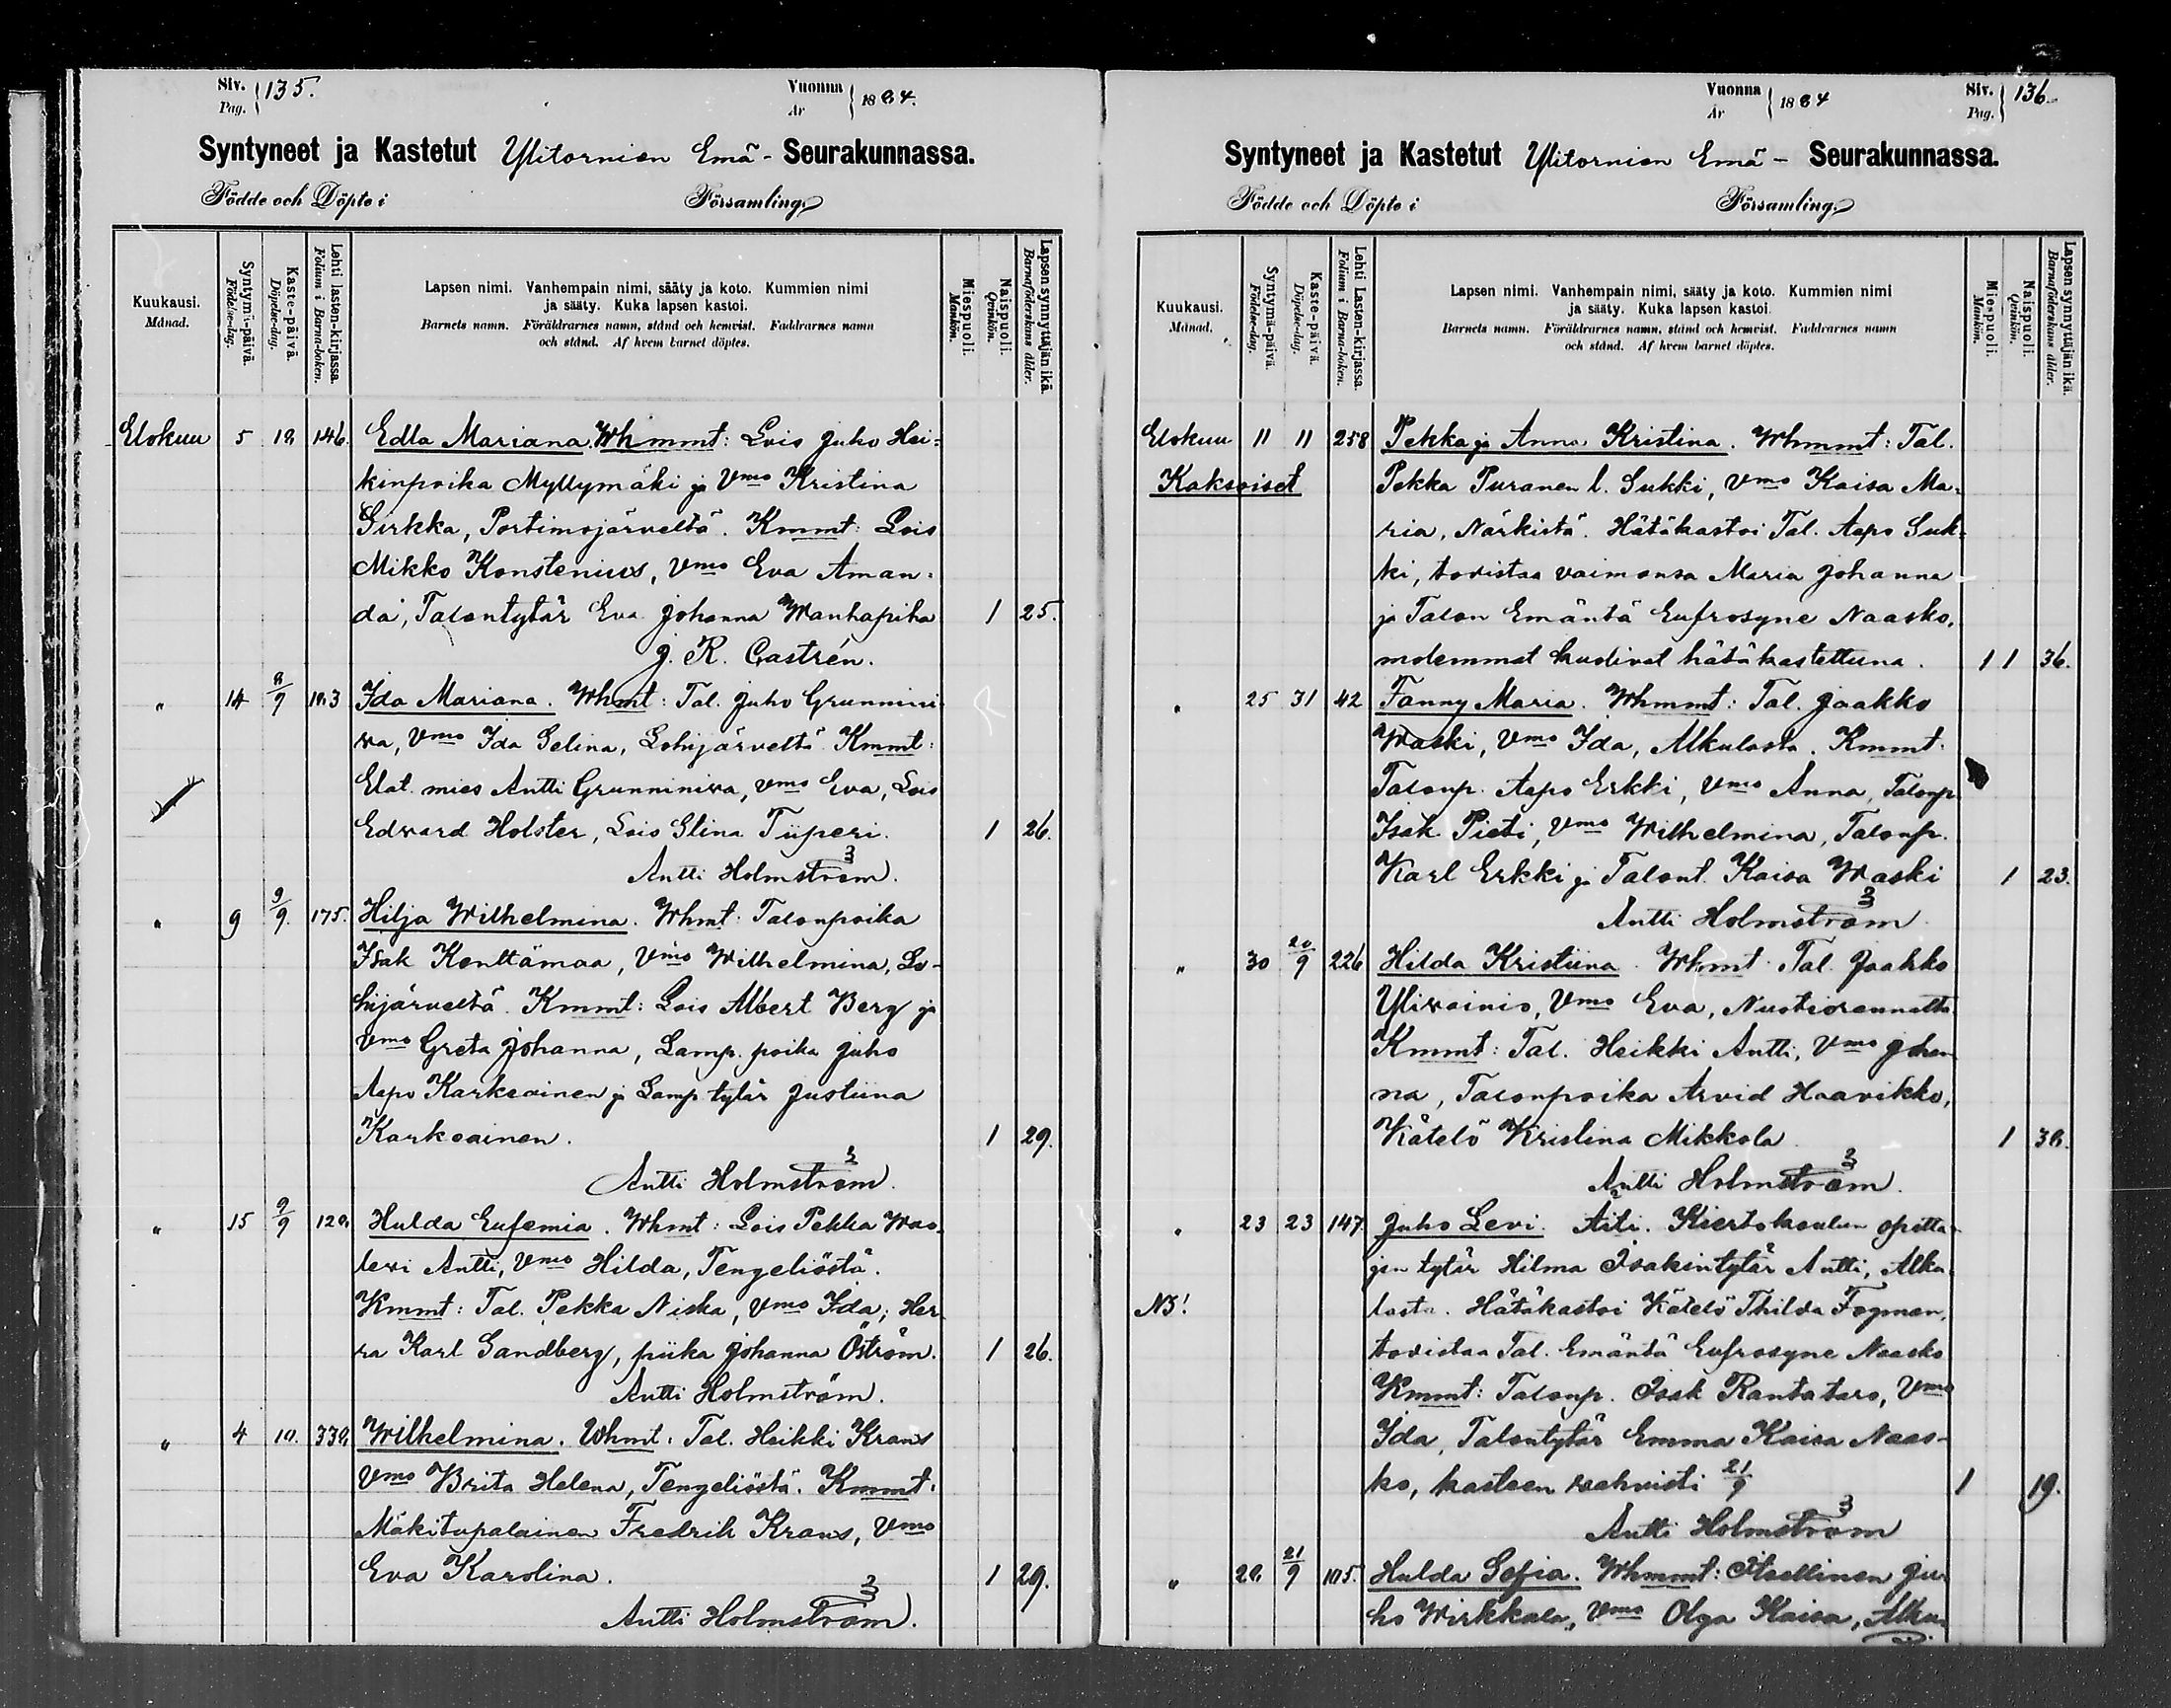 Siv. Pag. 135.
Vuonna År 1884.
Syntyneet ja Kastetut Ylitornion Emä- Seurakunnassa.
Födde och Döpte i Församling.
Kuukausi. Månad.
Syntymä-päivä. Födelse-dag.
Kaste-päivä. Döpelse-dag.
Lehti lasten-kirjassa. Folium i Barna-boken.
Lapsen nimi. Vanhempain nimi, sääty ja koto. Kummien nimi
ja sääty. Kuka lapsen kastoi.
Barnets namn. Föräldrarnes namn, stånd och hemvist. Faddrarnes namn
och stånd. Af hvem barnet döptes.
Miespuoli. Mankön.
Naispuoli. Qvinkön.
Lapsen synnyttäjän ikä. Barnaföderskans ålder.
Elokuu 5 146. Edla Mariana. Whmmt: Lois Juho Hei-
kinpoika Myllymäki ja Vmo Kristina
Sirkka, Portimojärveltä. Kmmt: Lois
Mikko Konstenius, Vmo Eva Aman-
da, Talontytär Eva Johanna Wanhapiha 1 25.
J. R. Castrén.
" 14 Ida Mariana. Whmt: Tal. Juho Grunnini
va, Vmo Ida Selina, Lohijärveltä. Kmmt:
Elat. mies Antti Grunniniva, Vmo Eva, Lois
Edvard Holster, Lois Stina Tiiperi. 1 26.
Antti Holmström.
" 9 9/9. 175. Hilja Wilhelmina. Whmt: Talonpoika
Isak Kenttämaa, Vmo Wilhelmina, Lo-
hijärveltä. Kmmt: Lois Albert Berg ja
Vmo Greta Johanna, Lamp. poika Juho
Aapo Karkeainen ja Lamp. tytär Justiina
Karkeainen. 1 29.
Antti Holmström.
" 15 9/9 Hulda Eufemia. Whmt: Lois Pekka Waa-
levi Antti, Vmo Hilda, Tengeliöstä.
Kmmt: Tal. Pekka Niska, Vmo Ida; Her
ra Karl Sandberg, piika Johanna Öström. 1 26.
Antti Holmström.
" 4 10. Wilhelmina. Whmt: Tal. Heikki Krans
Vmo Brita Helena, Tengeliöstä. Kmmt:
Mäkitupalainen Fredrik Krans, Vmo
Eva Karolina. 1 29.
Antti Holmström.
Vuonna År 1884
Siv. Pag. 136.
Syntyneet ja Kastetut Ylitornion Emä- Seurakunnassa.
Födde och Döpte i Församling.
Kuukausi. Månad.
Syntymä-päivä. Födelse-dag.
Kaste-päivä. Döpelse-dag.
Lehti Lasten-kirjassa. Folium i Barna-boken.
Lapsen nimi. Vanhempain nimi, sääty ja koto. Kummien nimi
ja sääty. Kuka lapsen kastoi.
Barnets namn. Föräldrarnes namn, stånd och hemvist. Faddrarnes namn
och stånd. Af hvem barnet döptes.
Miespuoli. Mankön.
Naispuoli. Qvinkön.
Lapsen synnyttäjän ikä. Barnaföderskans ålder.
Elokuu 11 11 258 Pekka ja Anna Kristina. Whmmt: Tal.
Kaksoiset Pekka Puranen l. Sukki, Vmo Kaisa Ma-
ria, Närkistä. Hätäkastoi Tal. Aapo Suk-
ki, todistaa vaimonsa Maria Johanna
ja Talon Emäntä Eufrosyne Naasko,
molemmat kuolivat hätäkastettuna. 1 1 36.
" 25 31 42 Fanny Maria. Whmmt: Tal. Jaakko
Waski, Vmo Ida, Alkulasta. Kmmt.
Talonp. Aapo Erkki, Vmo Anna, Talonp.
Isak Pieti, Vmo Wilhelmina, Talonp.
Karl Erkki ja Talont. Kaisa Waski 1 23.
Antti Holmström
" 30 20/9 226 Hilda Kristiina. Whmt. Tal. Jaakko
Ylivainio, Vmo Eva, Nuotiorannalta
Kmmt: Tal. Heikki Antti, Vmo Johan
na, Talonpoika Arvid Haavikko,
Kätelö Kristina Mikkola 1
Antti Holmström.
" 23 23 147 Juho Levi. Äiti. Kiertokoulun opetta-
jan tytär Hilma Isakintytär Antti, Alku-
NB! lasta. Hätäkastoi Kätelö Thilda Fogman,
todistaa Tal. Emäntä Eufrosyne Naasko
Kmmt: Talonp. Isak Rantataro, Vmo
Ida, Talontytär Emma Kaisa Naas-
ko, kasteen vahvisti 21/9 1 19.
Antti Holmström
" 21/9 105. Hulda Sofia. Whmmt: Itsellinen Ju-
ho Wirkkala, Vmo Olga Kaisa, Alku-